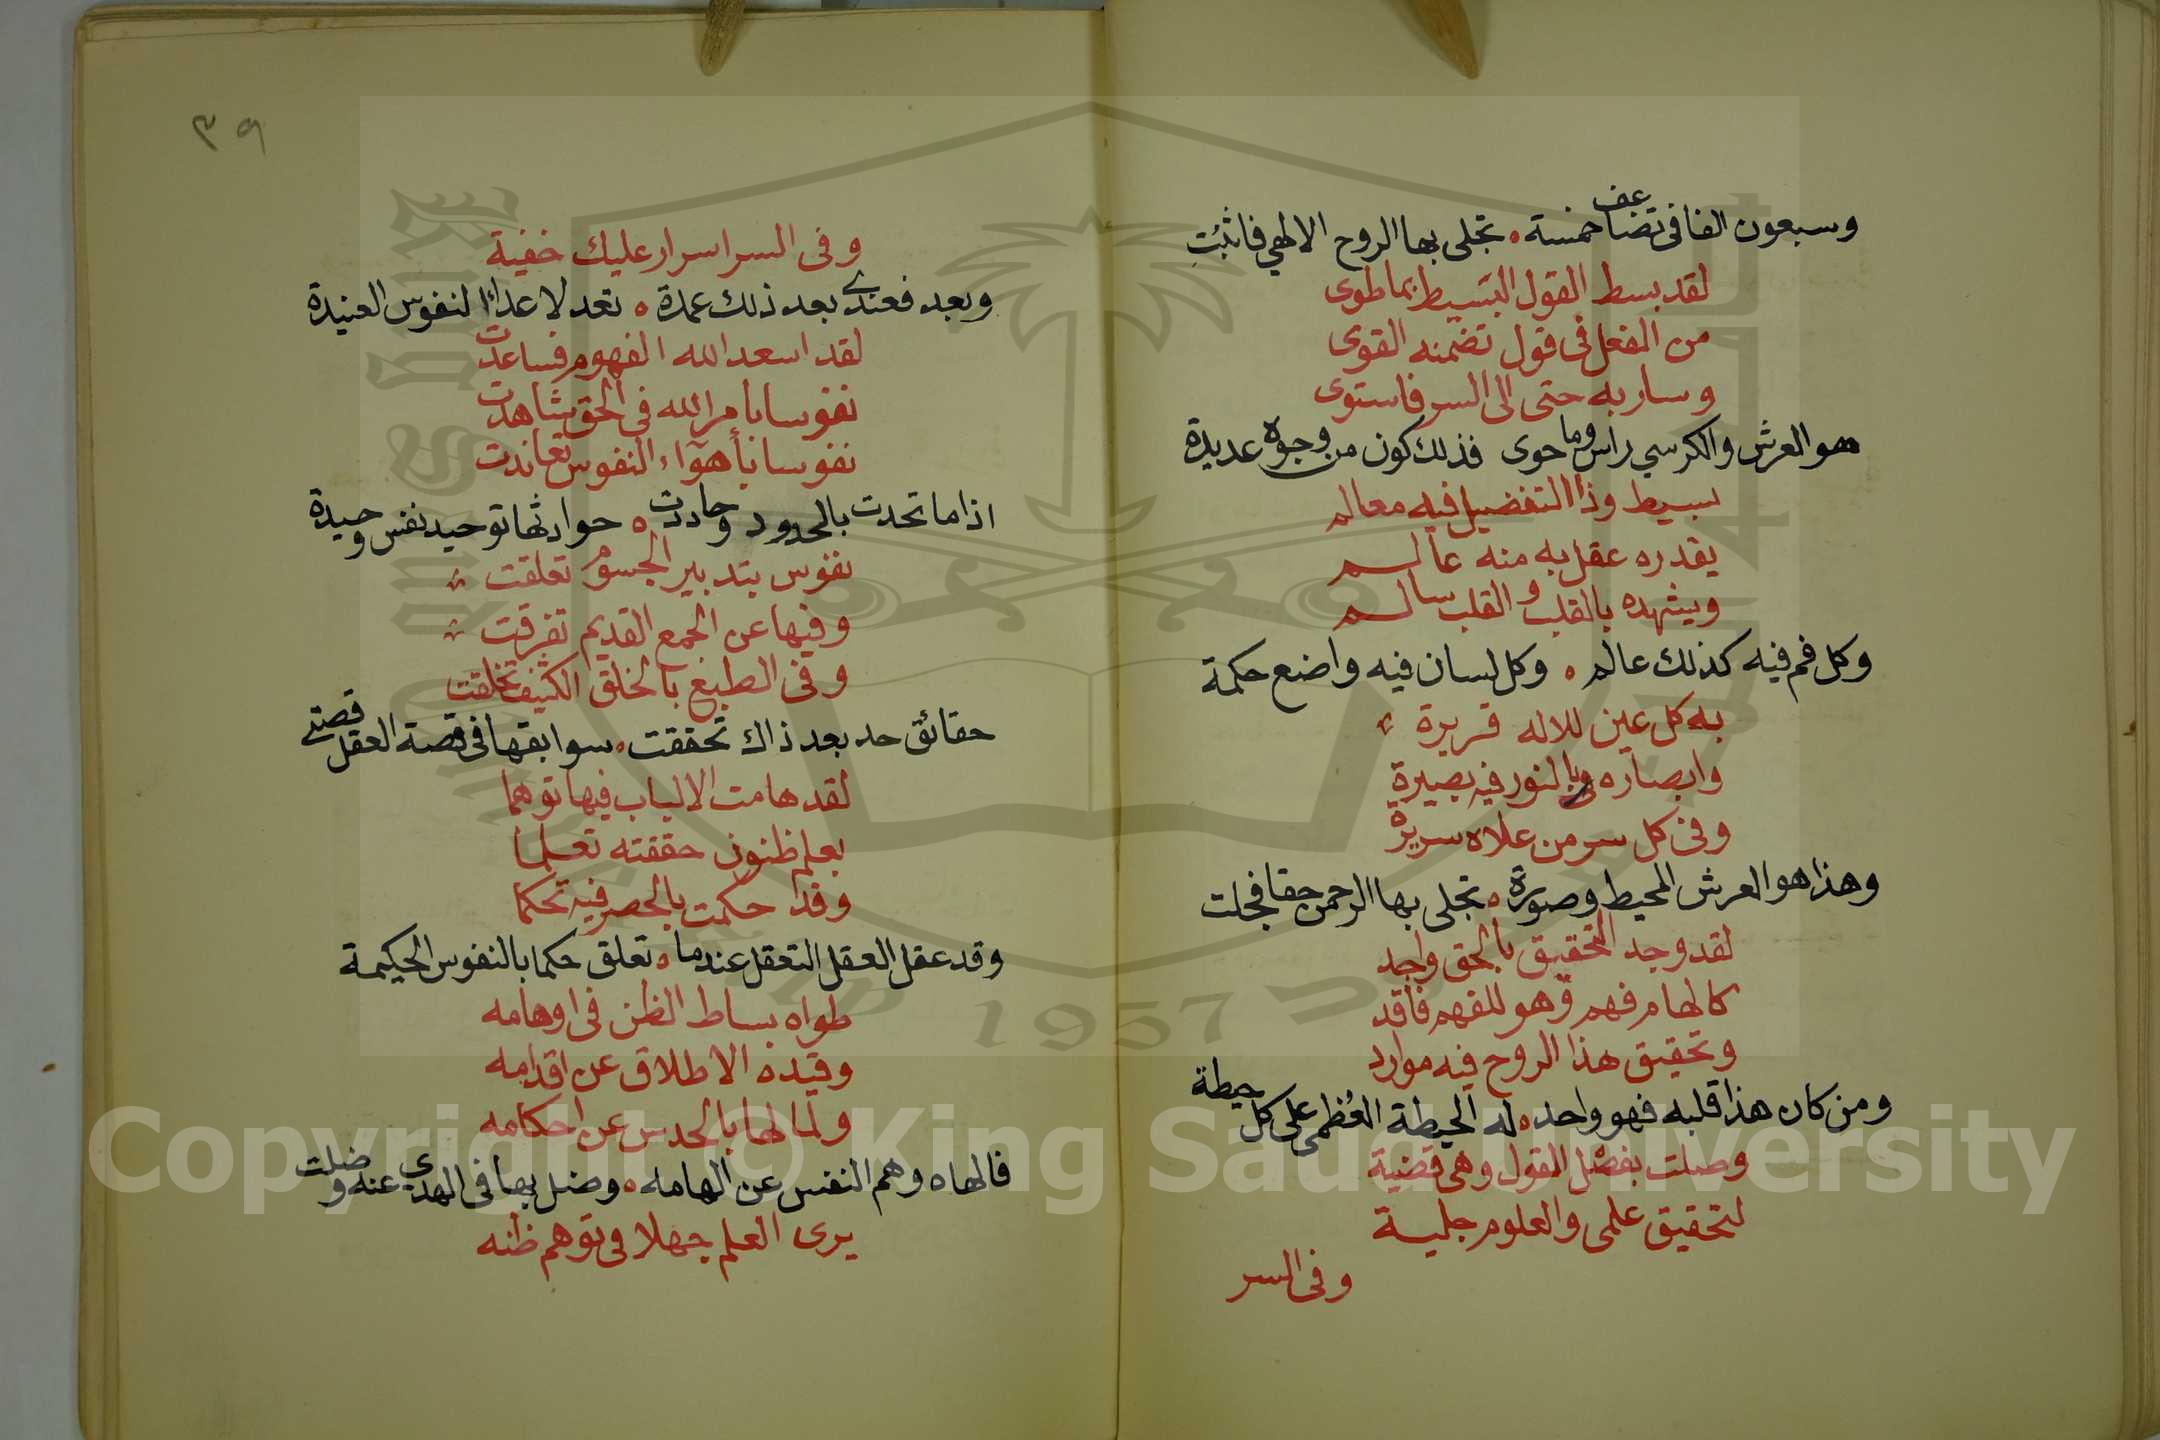 وسبعون الفا فى تضاعف خمسة ۰ تجلى بها الروح الالهي فاثبت
لقد بسط القول البسيط بما طوى
من الفعل فى قول تضمنه القوى
وسار به حتى الى السر فاستوى
هو العرش والكرسي راس وما حوى فذلك كون من وجوه عديدة
بسيط وذا التفضيل فيه معالم
يقدره عقل به منه عالم
ويشهده بالقلب والقلب سالم
وكل فم فيه كذلك عالم ۰ وكل لسان فيه واضع حكمة
به كل عين للاله قريرة
وابصاره بالنور فيه بصيرة
وفى كل سر من علاه سريرة
وهذا هو العرش المحيط وصورة ۰ تجلى بها الرحمن حقا فجلت
لقد وجد التحقيق بالحق واجد
كالهام فهم وهو للفهم فاقد
وتحقيق هذا الروح فيه موارد
ومن كان هذا قلبه فهو واحد ۰ له الحيطة العُظمى على كل حيطة
وصلت بفصل القول وهى قضية
لتحقيق علمى والعلوم جلية
وفى السر
٣٩
وفى السر اسرار عليك خفية
وبعد فعندي بعد ذلك عمدة ۰ تعد لاعداء النفوس العنيدة
لقد اسعد الله الفهوم فساعدت
نفوسا بامر الله فى الحق شاهدت
نفوسا بأهوآء النفوس تعاندت
اذا ما تحدت بالحدود وحاددت ۰ حوادثها توحيد نفس وحيدة
نفوس بتدبير الجسوم تعلقت
وفيها عن الجمع القديم تفرقت
وفى الطبع بالخلق الكثيف تخلقت
حقائق حد بعد ذاك تحققت ۰ سوابقها فى قصة العقل قصتي
لقد هامت الالباب فيها توهما
بعلم ظنون حققته تعلما
وقد حكمت بالحصر فيه تحكما
وقد عقل العقل التعقل عندما ۰ تعلق حكما بالنفوس الحكيمة
طواه بساط الظن فى اوهامه
وقيده الاطلاق عن اقدامه
ولما لها بالحدس عن احكامه
فالهاه وهم النفس عن الهامه ۰ وضل بها فى الهدي عنه وضلت
يرى العلم جهلا فى توهم ظنه
1957
Copyright © King Saud University